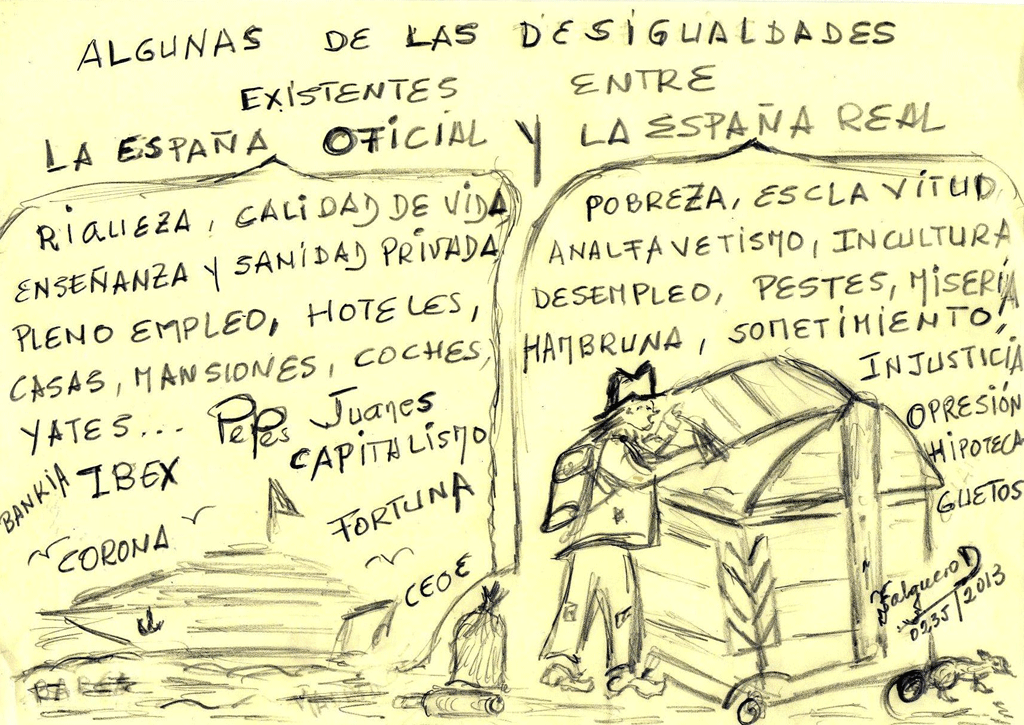 ALGUNAS DE LAS DESIGUALDADES
EXISTENTES ENTRE
LA ESPAÑA OFICIAL Y LA ESPAÑA REAL
RIQUEZA, CALIDAD DE VIDA
ENSEÑANZA Y SANIDAD PRIVADA
PLENO EMPLEO, HOTELES,
CASAS, MANSIONES, COCHES,
YATES... PePes Juanes
CAPITALISMO
BANKIA IBEX
FORTUNA
CORONA
CEOE
POBREZA, ESCLAVITUD
ANALFAVETISMO, INCULTURA
DESEMPLEO, PESTES, MISERÍA
HAMBRUNA, SOMETIMIENTO,
INJUSTICÍA
OPRESIÓN
HIPOTECA
GUETOS
Falguero D
0235/2013